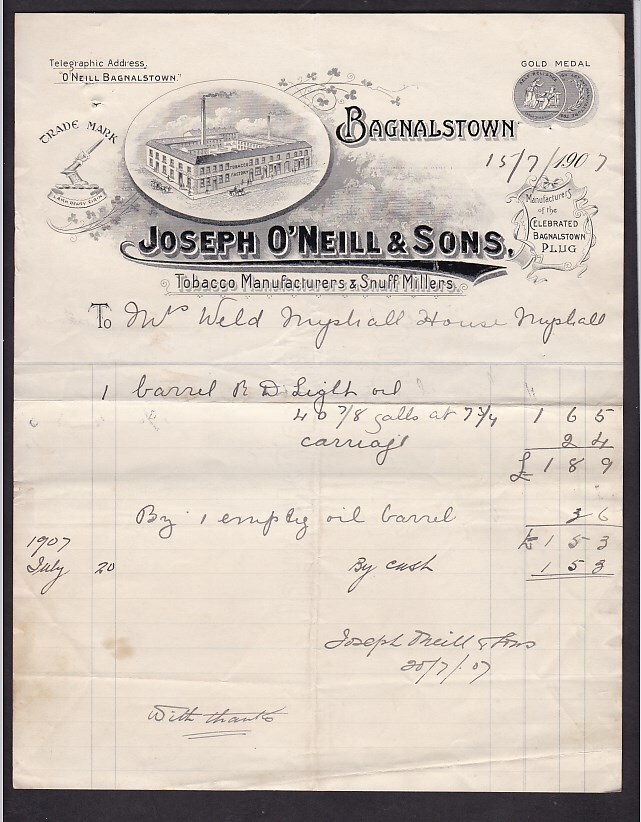 Telegraphic Address,
"O'NEILL BAGNALSTOWN."
GOLD MEDAL
TRADE MARK
LAMH DEARG EIRIN
TOBACCO
FACTORY
BAGNALSTOWN
15/7/1907
Manufacturers
of the
CELEBRATED
BAGNALSTOWN
PLUG
JOSEPH O'NEILL & SONS,
Tobacco Manufacturers & Snuff Millers.
To Mrs Weld Myshall House Myshall
1 barrel R D Light oil
40 7/8 galls at 7 3/4 1 6 5
carriage 2 4
£ 1 8 9
By 1 empty oil barrel 3 6
£ 1 5 3
1907
July 20 By cash 1 5 3
Joseph O'Neill & Sons
20/7/07
With thanks